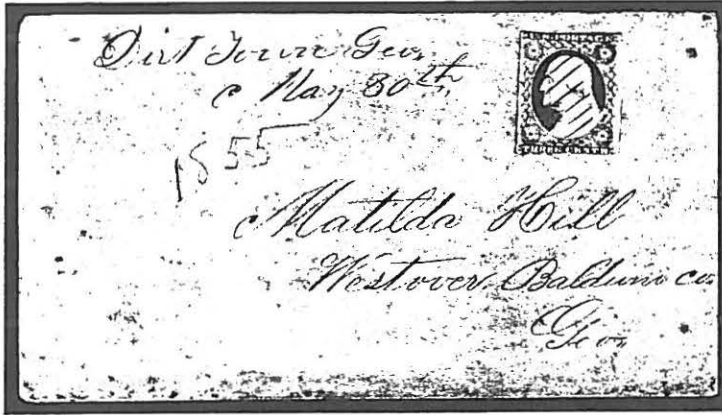 Dirt Town Geo.
May 30th
1855
Matilda Hill
Westover Baldwin co
Geo.